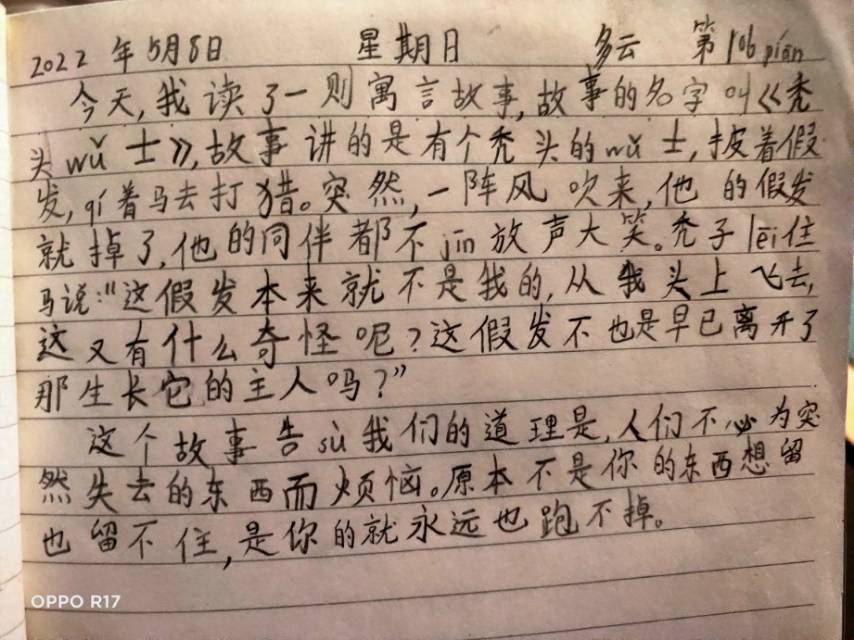 2022年5月8日 星期日 多云 第106piān
今天,我读了一则寓言故事,故事的名字叫《秃
头wǔ士》,故事讲的是有个秃头的wǔ士,披着假
发,qí着马去打猎。突然,一阵风吹来,他的假发
就掉了,他的同伴都不jīn放声大笑。秃子lēi住
马说:“这假发本来就不是我的,从我头上飞去,
这又有什么奇怪呢?这假发不也是早已离开了
那生长它的主人吗?”
这个故事告sù我们的道理是,人们不必为突
然失去的东西而烦恼。原本不是你的东西想留
也留不住,是你的就永远也跑不掉。
OPPO R17